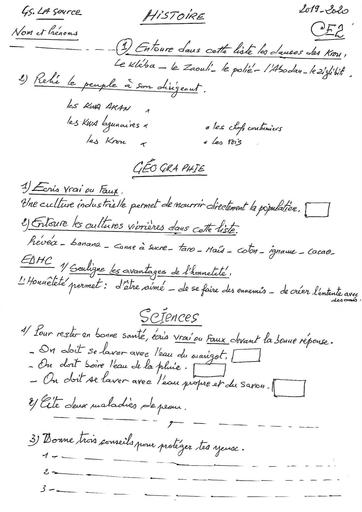 GS. LA SOURCE HISTOIRE 2019-2020
Nom et Prénoms CE2
1) Entoure dans cette liste les danses des Krou:
Le kléba - le Zaouli - le polié - l'Abodan - le ziglibit.
2) Relie le peuple à son dirigeant.
les KWA AKAN
les KWA lagunaires les chefs coutumiers
les Krou les rois
GÉOGRAPHIE
1) Ecris vrai ou Faux.
Une culture industrielle permet de nourrir directement la population.
2) Entoure les cultures vivrières dans cette liste.
Hévéa - banana - canne à sucre - taro - Maïs - coton - igname - cacao.
EDHC 1/ Souligne les avantages de l'honnêteté.
L'Honnêteté permet: d'être aimé - de se faire des ennemis - de créer l'entente avec
des amis.
SCIENCES
1/ Pour rester en bonne santé, écris vrai ou Faux devant la bonne réponse.
- On doit se laver avec l'eau du marigot.
- On doit boire l'eau de la pluie.
- On doit se laver avec l'eau propre et du savon.
2/ Cite deux maladies de peau.
3) Donne trois conseils pour protéger tes yeux.
1 -
2 -
3 -